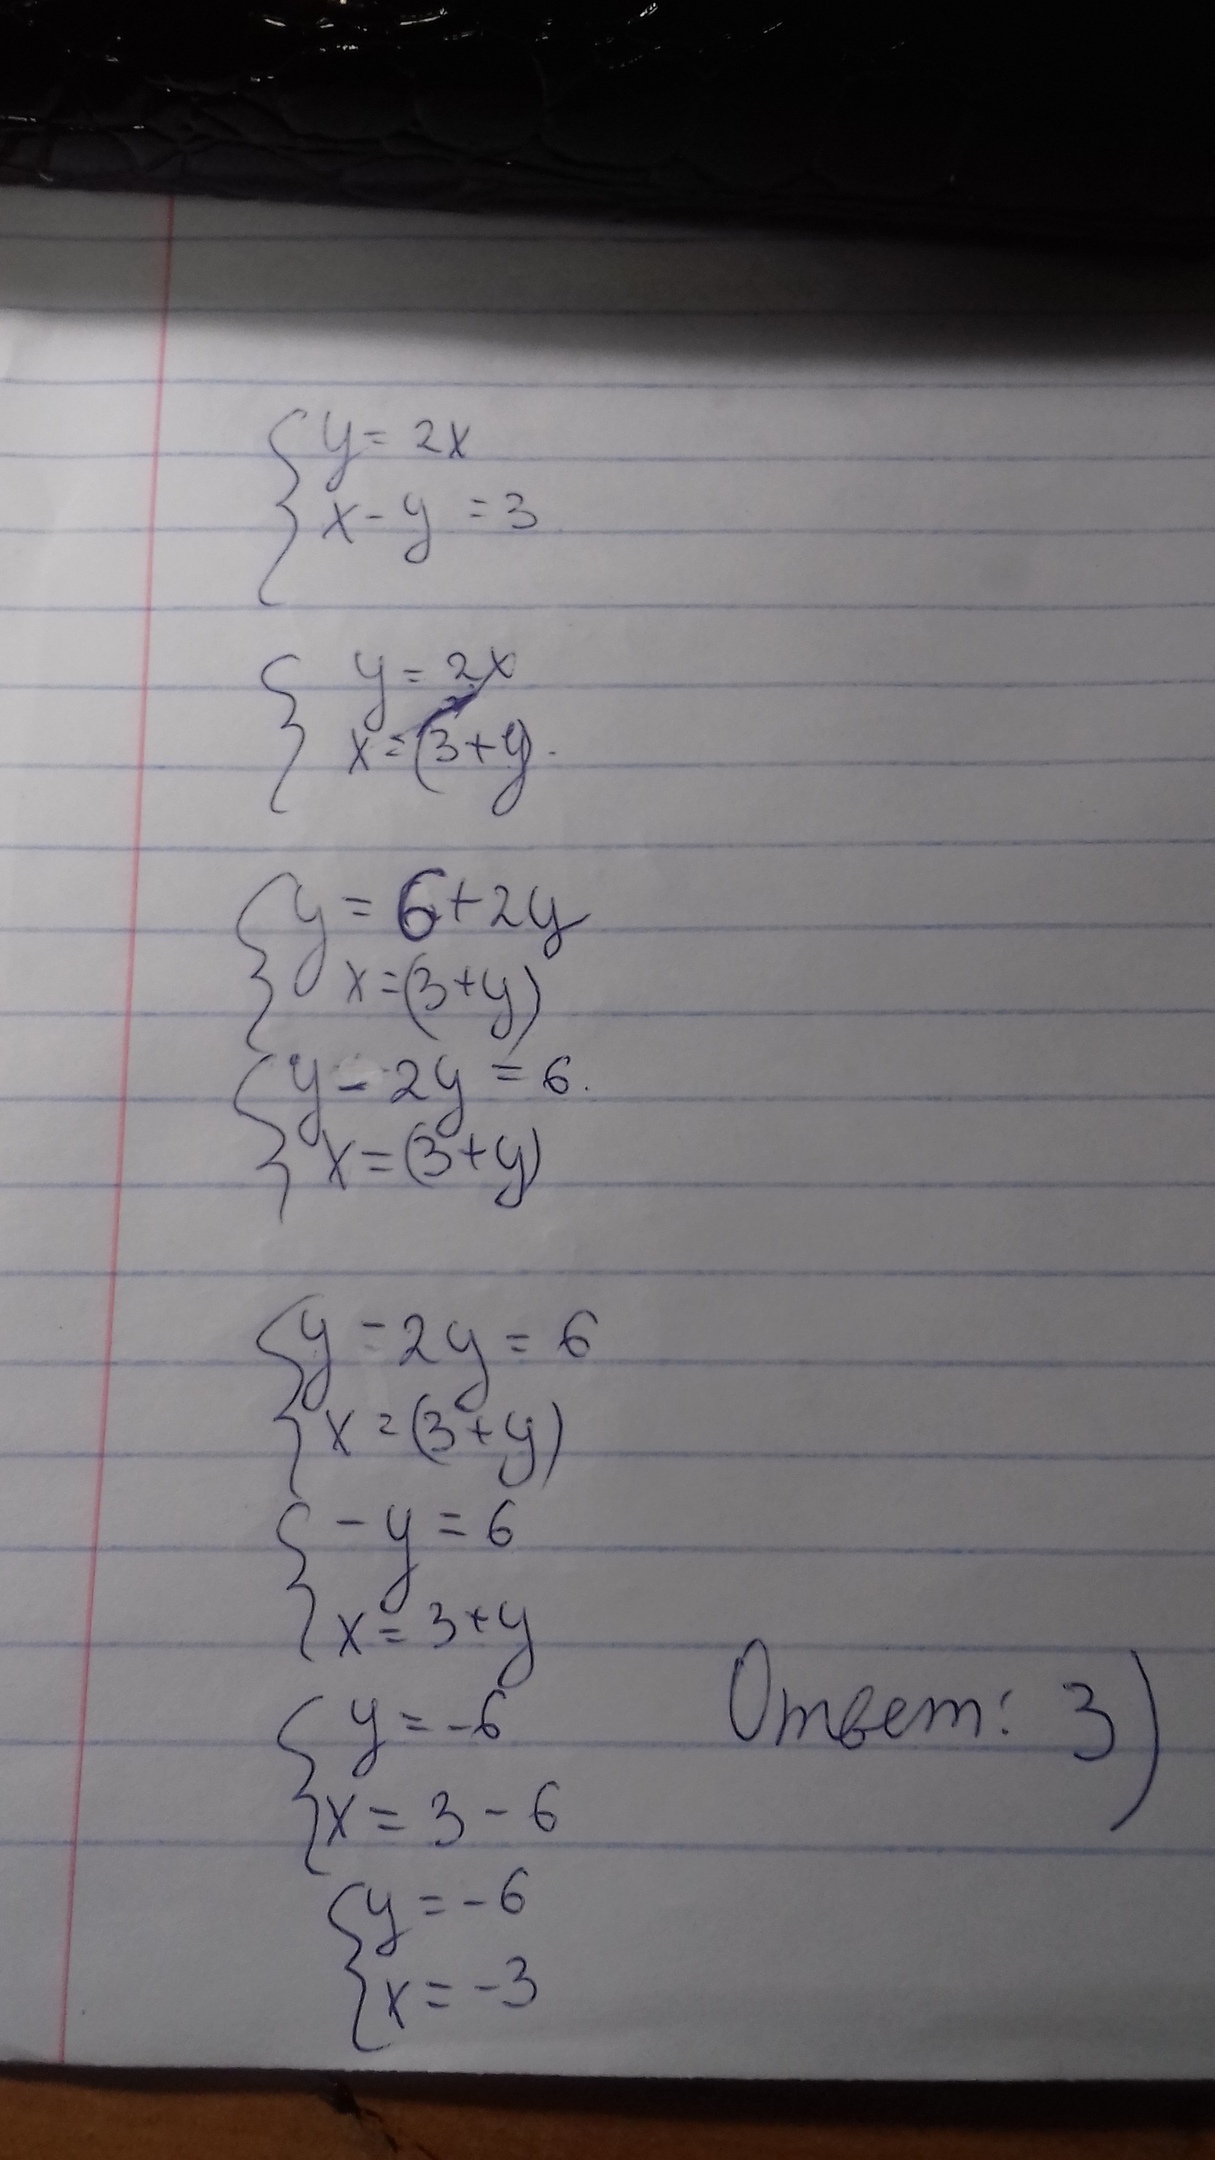 y = 2x
x - y = 3
y = 2x
x = (3 + y).
y = 6 + 2y
x = (3 + y)
y - 2y = 6.
x = (3 + y)
y - 2y = 6
x = (3 + y)
- y = 6
x = 3 + y
y = -6
x = 3 - 6
Ответ: 3)
y = -6
x = -3